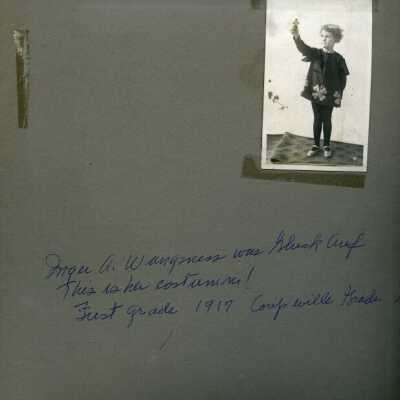 Inger A. Wangness was
This is her costume!
First grade 1917 Coupeville Grade